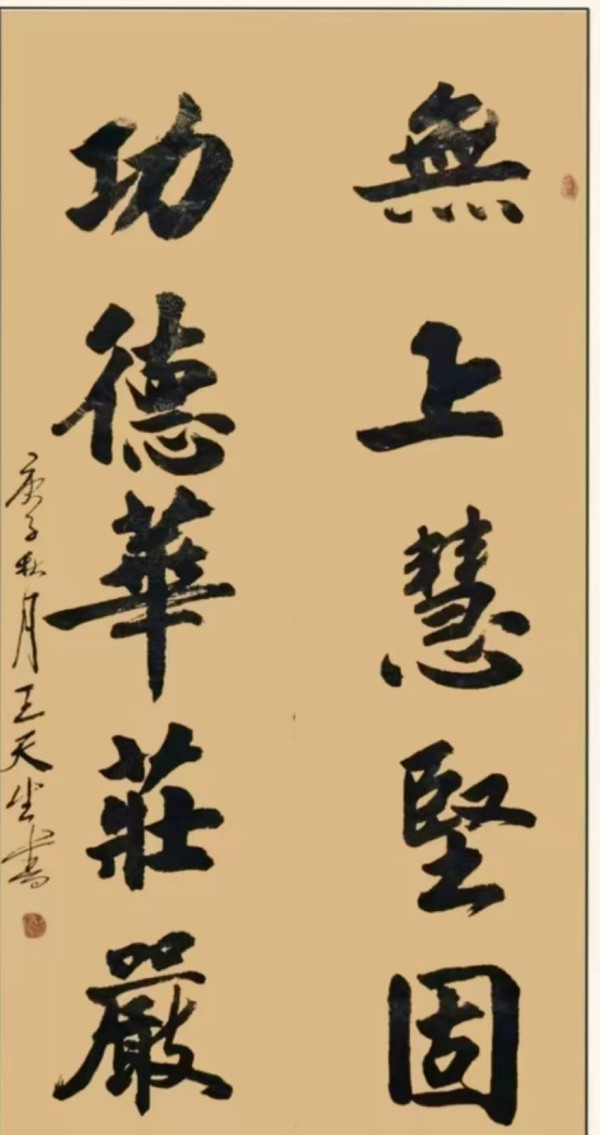 無上慧堅固
功德華莊嚴
庚子秋月王天生書